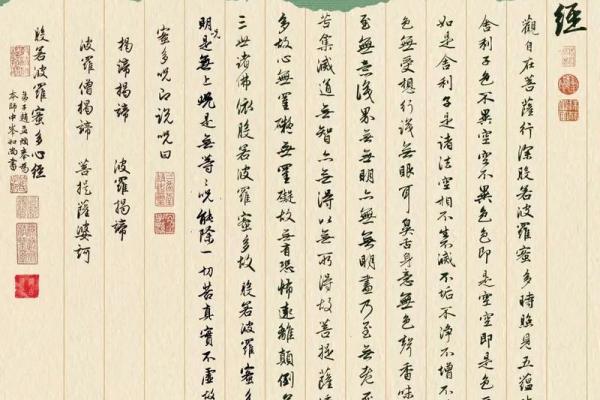 經
觀自在菩薩行深般若波羅蜜多時照見五蘊
舍利子色不異空空不異色色即是空空即是色
如是舍利子是諸法空相不生滅不垢不淨不增不
色無受想行識無眼耳鼻舌身意無色聲香味
至無意識界無無明亦無無明盡乃至無老
苦集滅道無智亦無得以無所得故菩提薩
多故心無罣礙無罣礙故無有恐怖遠離顛倒
三世諸佛依般若波羅蜜多故般若波羅蜜
明咒是無上咒是無等々咒能除一切苦真實不虛故
蜜多咒即說咒曰
揭諦揭諦 波羅揭諦
波羅僧揭諦 菩提薩婆訶
般若波羅蜜多心經
弟子趙孟頫奉為
本師中峯和尚書